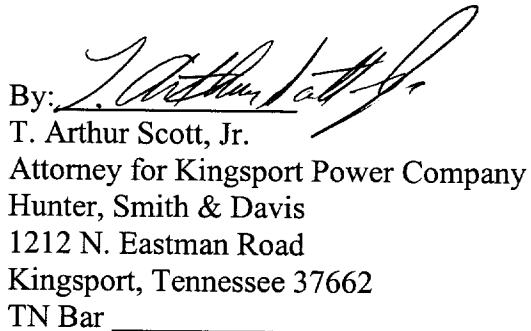 By: T. Arthur Scott Jr.
T. Arthur Scott, Jr.
Attorney for Kingsport Power Company
Hunter, Smith & Davis
1212 N. Eastman Road
Kingsport, Tennessee 37662
TN Bar